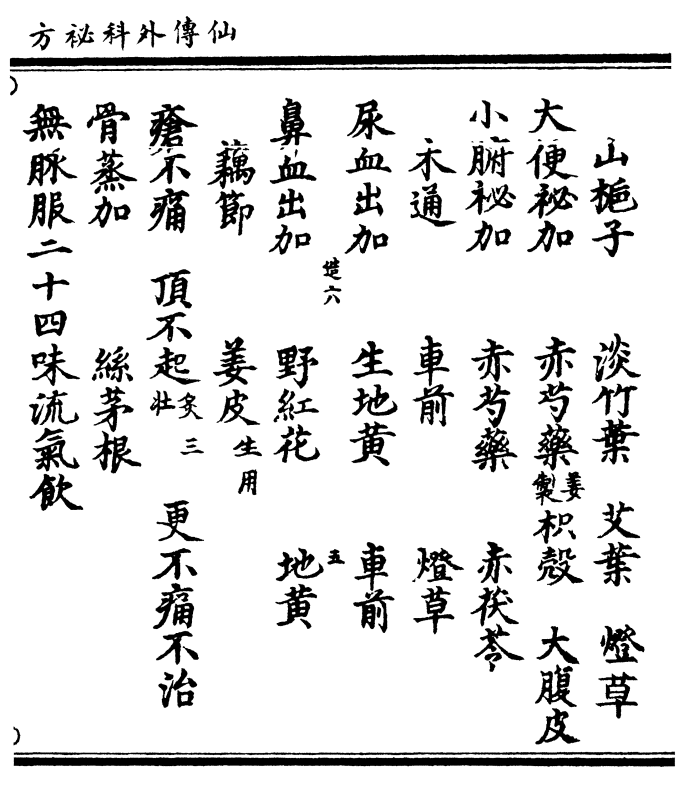 仙傳外科祕方
山梔子 淡竹葉 艾葉 燈草
大便祕加 赤芍藥 姜製 枳殼 大腹皮
小腑祕加 赤芍藥 赤茯苓
木通 車前 燈草
尿血出加 生地黃 車前
造六 五
鼻血出加 野紅花 地黃
藕節 姜皮 生用
瘡不痛 頂不起 炙三壯 更不痛不治
骨蒸加 絲茅根
無脉服二十四味流氣飲